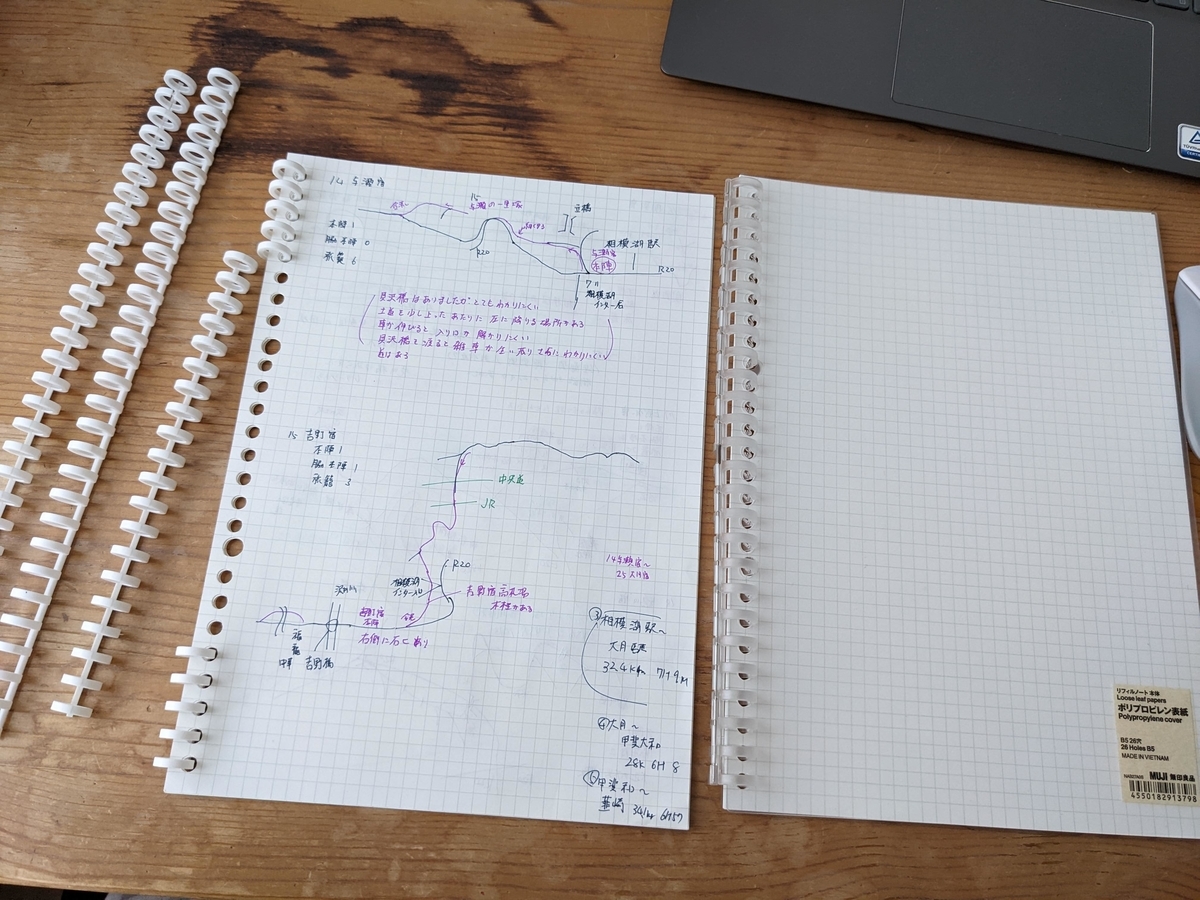 与瀬宿
与瀬の一里塚
本陣 1
脇本陣 0
旅籠 6
R20
相模湖駅
与瀬宿
本陣
R20
相模湖
インター
貝沢橋はありましたがとてもわかりにくい
土手を少し上ったあたりに左に降りる場所がある
草が伸びると入り口が解かりにくい
貝沢橋を渡ると雑草が生い茂り
道はある
吉野宿
本陣 1
脇本陣 1
旅籠 3
中央道
JR
R20
相模湖
インター入口
吉野宿高札場
木柱がある
吉野宿
本陣
右側に石仏あり
沢井川
吉野橋
14与瀬宿〜
25大月宿
③相模湖駅〜
大月駅
32.4km 7H9M
④大月〜
甲斐大和
28k 6H 8
⑤甲斐大和〜
韮崎 34.1km 6H57
リフィルノート 本体
Loose leaf papers
ポリプロピレン表紙
Polypropylene cover
B5 26穴
26 Holes B5
MADE IN VIETNAM
MUJI 無印良品
4550182913798